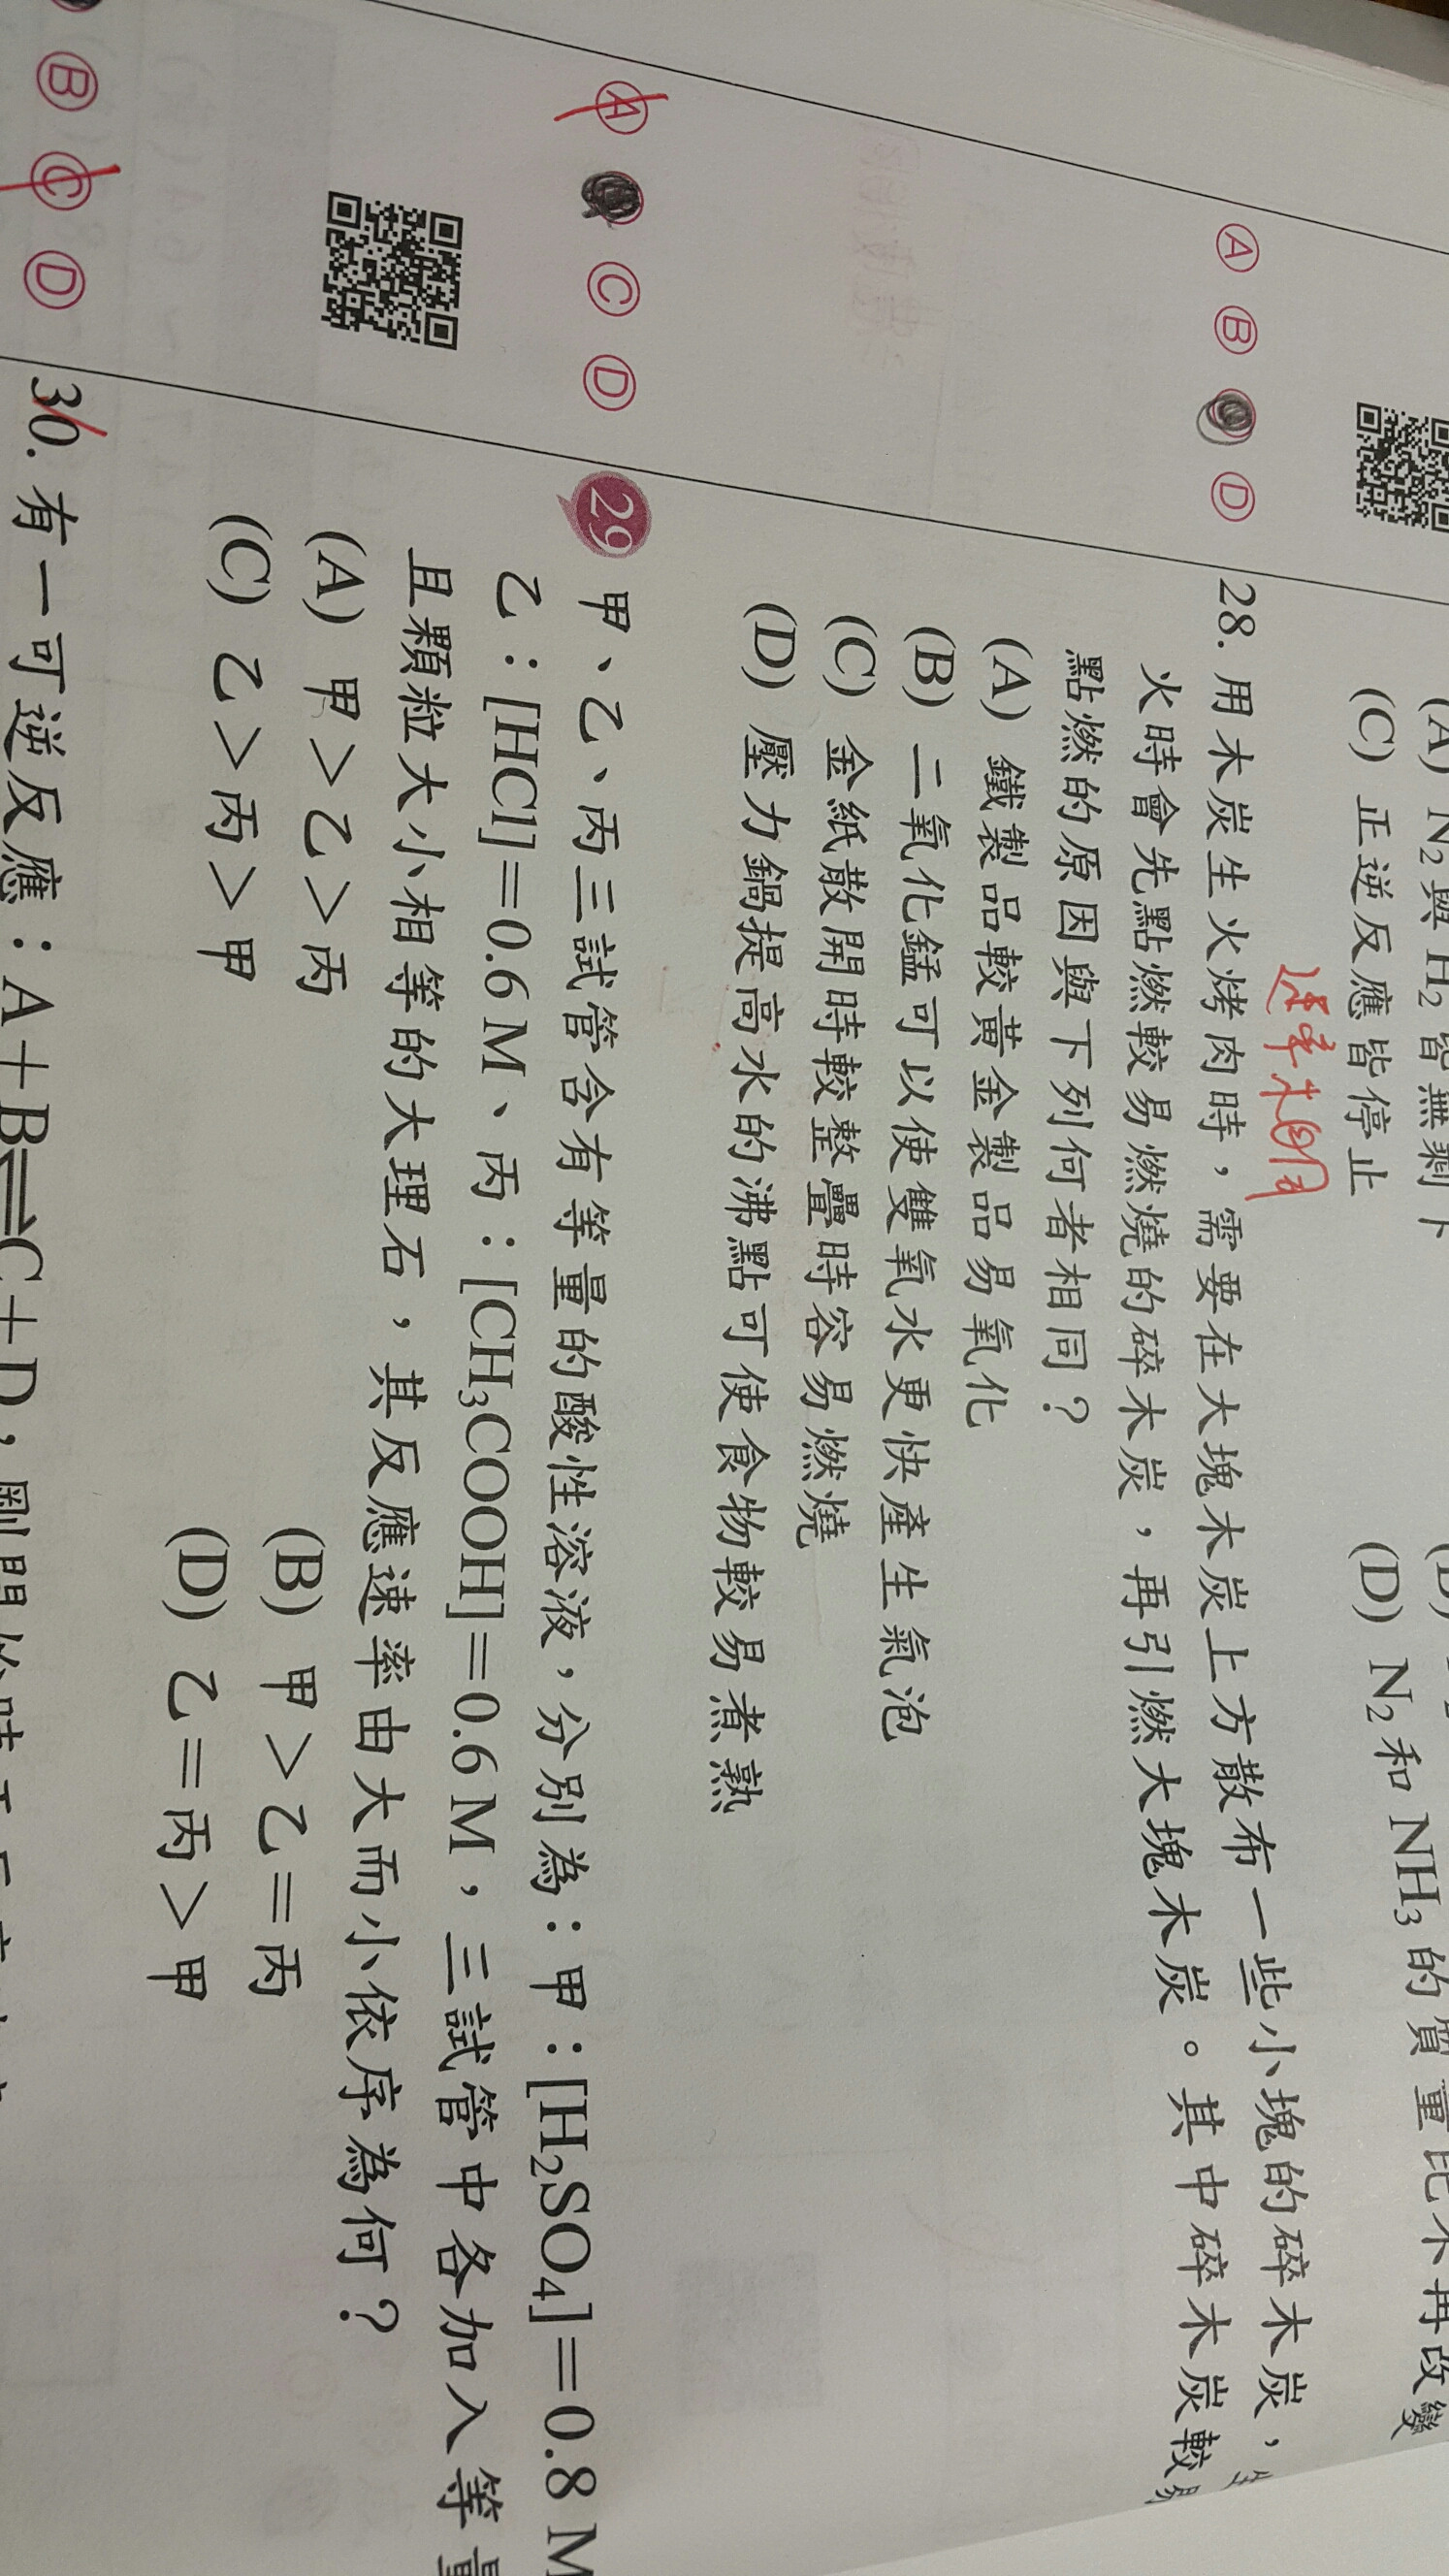 (A) N₂與 H₂ 皆無剩下
(C) 正逆反應皆停止
(D) N₂和 NH₃ 的質量比不再改變
Ⓐ Ⓑ Ⓓ
28. 用木炭生火烤肉時，需要在大塊木炭上方散布一些小塊的碎木炭，
火時會先點燃較易燃燒的碎木炭，再引燃大塊木炭。其中碎木炭較易
點燃的原因與下列何者相同？
(A) 鐵製品較黃金製品易氧化
(B) 二氧化錳可以使雙氧水更快產生氣泡
(C) 金紙散開時較整疊時容易燃燒
(D) 壓力鍋提高水的沸點可使食物較易煮熟
Ⓐ Ⓒ Ⓓ
29 甲、乙、丙三試管含有等量的酸性溶液，分別為：甲：[H₂SO₄]＝0.8 M
乙：[HCl]＝0.6 M、丙：[CH₃COOH]＝0.6 M，三試管中各加入等量
且顆粒大小相等的大理石，其反應速率由大而小依序為何？
(A) 甲＞乙＞丙 (B) 甲＞乙＝丙
(C) 乙＞丙＞甲 (D) 乙＝丙＞甲
Ⓑ Ⓒ Ⓓ
30. 有一可逆反應：A＋B⇌C＋D，剛開始時